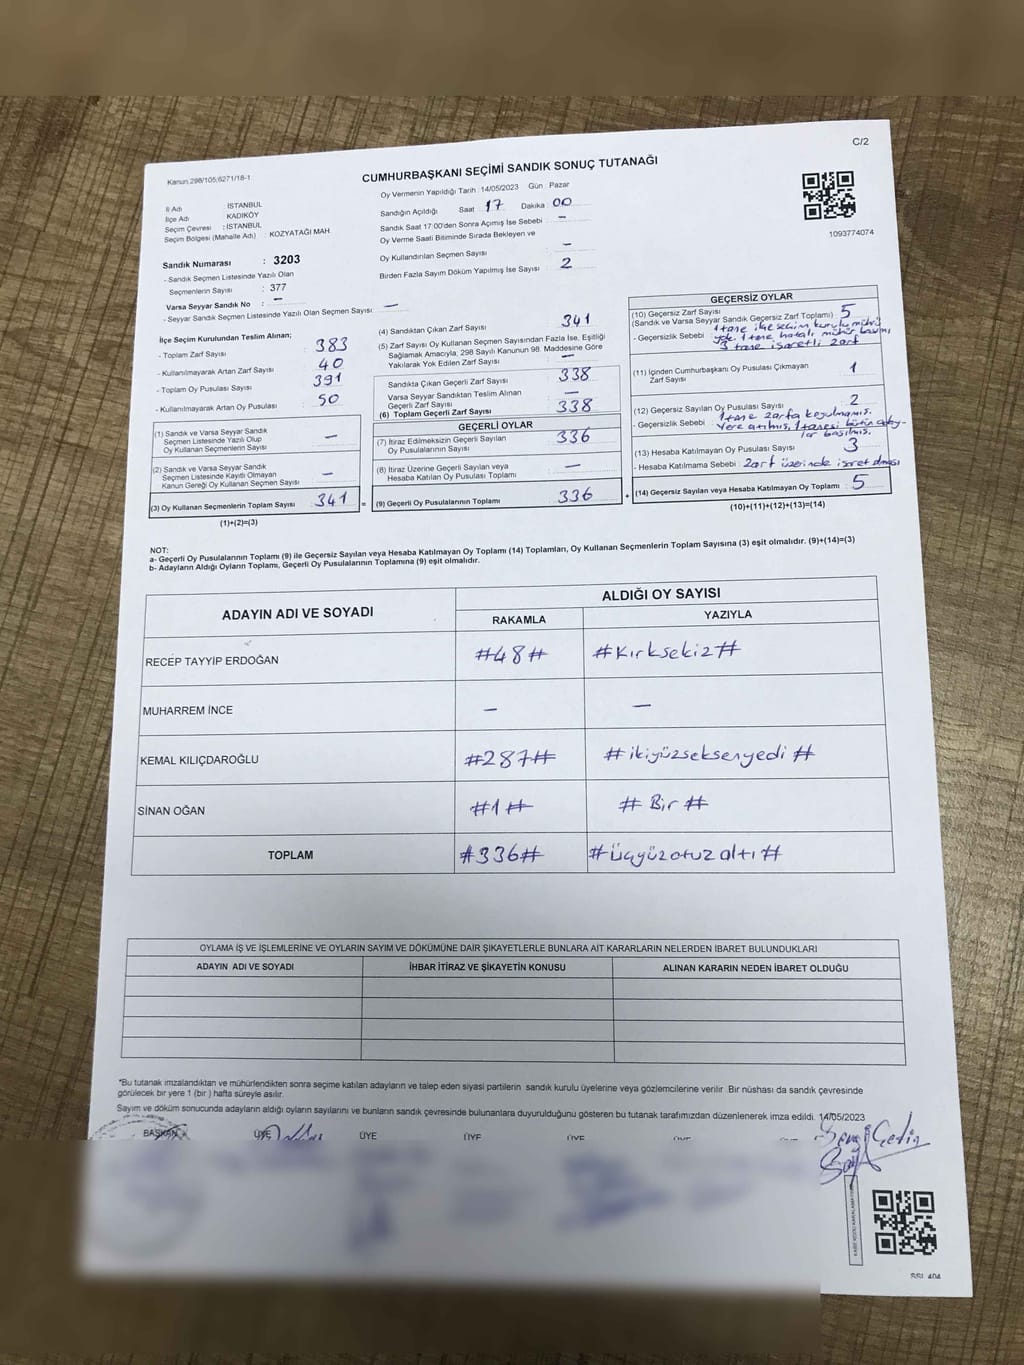 C/2
Kanun:298/105;6271/18-1
CUMHURBAŞKANI SEÇİMİ SANDIK SONUÇ TUTANAĞI
Oy Vermenin Yapıldığı Tarih : 14/05/2023 Gün : Pazar
İl Adı : İSTANBUL
İlçe Adı : KADIKÖY
Seçim Çevresi : İSTANBUL
Seçim Bölgesi (Mahalle Adı) : KOZYATAĞI MAH
Sandığın Açıldığı Saat 17 Dakika 00
Sandık Saat 17:00'den Sonra Açımış İse Sebebi : –
Oy Verme Saati Bitiminde Sırada Bekleyen ve
Oy Kullandırılan Seçmen Sayısı : –
Birden Fazla Sayım Döküm Yapılmış İse Sayısı : 2
1093774074
Sandık Numarası : 3203
- Sandık Seçmen Listesinde Yazılı Olan
Seçmenlerin Sayısı : 377
Varsa Seyyar Sandık No : –
- Seyyar Sandık Seçmen Listesinde Yazılı Olan Seçmen Sayısı: –
İlçe Seçim Kurulundan Teslim Alınan;
- Toplam Zarf Sayısı 383
- Kullanılmayarak Artan Zarf Sayısı 40
- Toplam Oy Pusulası Sayısı 391
- Kullanılmayarak Artan Oy Pusulası 50
(1) Sandık ve Varsa Seyyar Sandık
Seçmen Listesinde Yazılı Olup
Oy Kullanan Seçmenlerin Sayısı –
(2) Sandık ve Varsa Seyyar Sandık
Seçmen Listesinde Kayıtlı Olmayan
Kanun Gereği Oy Kullanan Seçmen Sayısı –
(3) Oy Kullanan Seçmenlerin Toplam Sayısı 341 =
(1)+(2)=(3)
(4) Sandıktan Çıkan Zarf Sayısı 341
(5) Zarf Sayısı Oy Kullanan Seçmen Sayısından Fazla İse, Eşitliği
Sağlamak Amacıyla, 298 Sayılı Kanunun 98. Maddesine Göre
Yakılarak Yok Edilen Zarf Sayısı –
Sandıkta Çıkan Geçerli Zarf Sayısı 338
Varsa Seyyar Sandıktan Teslim Alınan
Geçerli Zarf Sayısı –
(6) Toplam Geçerli Zarf Sayısı 338
GEÇERLİ OYLAR
(7) İtiraz Edilmeksizin Geçerli Sayılan
Oy Pusulası Toplamı 336
(8) İtiraz Üzerine Geçerli Sayılan veya
Hesaba Katılan Oy Pusulası Toplamı –
(9) Geçerli Oy Pusulalarının Toplamı 336 +
GEÇERSİZ OYLAR
(10) Geçersiz Zarf Sayısı
(Sandık ve Varsa Seyyar Sandık Geçersiz Zarf Toplamı) : 5
- Geçersizlik Sebebi : 1 tane ilçe seçim kurulu mührü
yok. 1 tane hatalı mühür basımı
3 tane işaretli zarf
(11) İçinden Cumhurbaşkanı Oy Pusulası Çıkmayan
Zarf Sayısı 1
(12) Geçersiz Sayılan Oy Pusulası Sayısı 2
- Geçersizlik Sebebi : 1 tane zarfa koyulmamış.
Yere atılmış, 1 tanesi bütün aday-
lar basılmış.
(13) Hesaba Katılmayan Oy Pusulası Sayısı 3
- Hesaba Katılmama Sebebi : Zarf üzerinde işaret olması
(14) Geçersiz Sayılan veya Hesaba Katılmayan Oy Toplamı 5
(10)+(11)+(12)+(13)=(14)
NOT:
a- Geçerli Oy Pusulalarının Toplamı (9) ile Geçersiz Sayılan veya Hesaba Katılmayan Oy Toplamı (14) Toplamları, Oy Kullanan Seçmenlerin Toplam Sayısına (3) eşit olmalıdır. (9)+(14)=(3)
b- Adayların Aldığı Oyların Toplamı, Geçerli Oy Pusulalarının Toplamına (9) eşit olmalıdır.
ADAYIN ADI VE SOYADI
ALDIĞI OY SAYISI
RAKAMLA YAZIYLA
RECEP TAYYİP ERDOĞAN #48# #Kırksekiz#
MUHARREM İNCE – –
KEMAL KILIÇDAROĞLU #287# #ikiyüzseksenyedi#
SİNAN OĞAN #1# #Bir#
TOPLAM #336# #üçyüzotuzaltı#
OYLAMA İŞ VE İŞLEMLERİNE VE OYLARIN SAYIM VE DÖKÜMÜNE DAİR ŞİKAYETLERLE BUNLARA AİT KARARLARIN NELERDEN İBARET BULUNDUKLARI
ADAYIN ADI VE SOYADI İHBAR İTİRAZ VE ŞİKAYETİN KONUSU ALINAN KARARIN NEDEN İBARET OLDUĞU
*Bu tutanak imzalandıktan ve mühürlendikten sonra seçime katılan adayların ve talep eden siyasi partilerin sandık kurulu üyelerine veya gözlemcilerine verilir. Bir nüshası da sandık çevresinde
görülecek bir yere 1 (bir) hafta süreyle asılır.
Sayım ve döküm sonucunda adayların aldığı oyların sayılarını ve bunların sandık çevresinde bulunanlara duyurulduğunu gösteren bu tutanak tarafımızdan düzenlenerek imza edildi. 14/05/2023
BAŞKAN ÜYE ÜYE ÜYE ÜYE